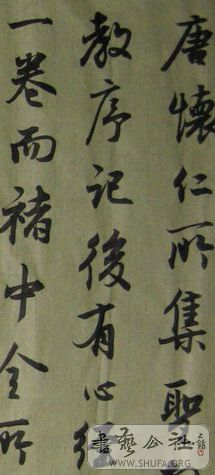 唐懷仁所集聖
教序記後有心經
一卷而褚中令所
書藝公社
WWW.SHUFA.ORG